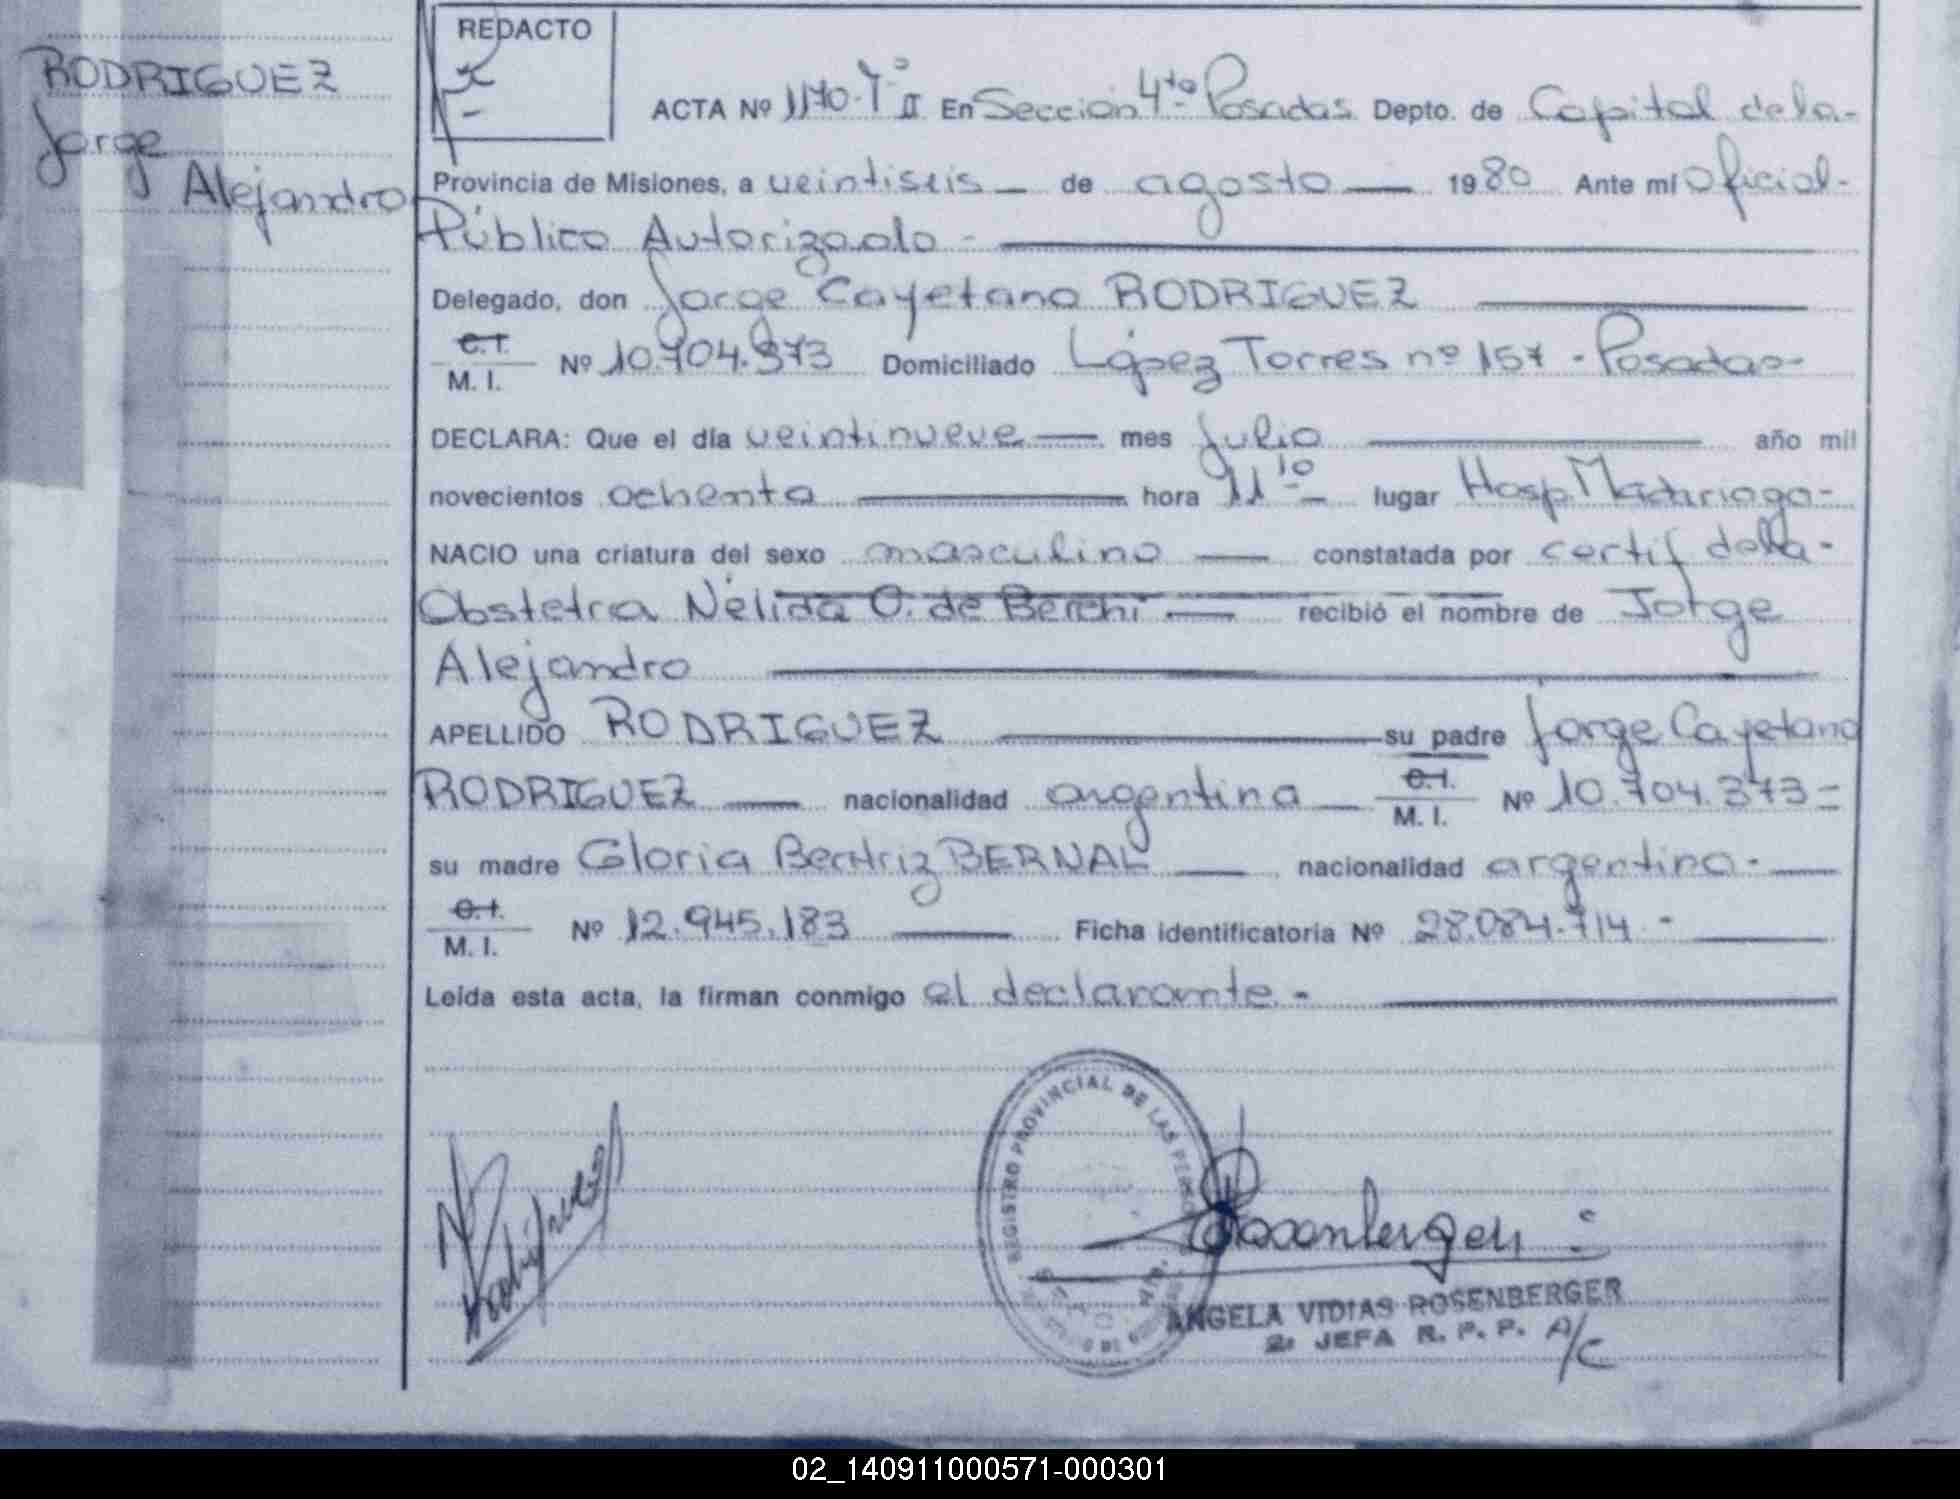 RODRIGUEZ
Jorge
Alejandro
REDACTO
ACTA Nº 1170-Tº II En Sección 4ta Posadas Depto. de Capital de la-
Provincia de Misiones, a veintiseis — de agosto — 1980 Ante mi Oficial-
Público Autorizado -
Delegado, don Jorge Cayetano RODRIGUEZ
C.I.
M. I. Nº 10.704.373 Domiciliado López Torres nº 157 - Posadas-
DECLARA: Que el día veintinueve — mes Julio año mil
novecientos ochenta hora 11 10 lugar Hosp. Madariaga-
NACIO una criatura del sexo masculino — constatada por certif de la-
Obstetra Nélida O. de Berchi — recibió el nombre de Jorge
Alejandro
APELLIDO RODRIGUEZ su padre Jorge Cayetano
RODRIGUEZ — nacionalidad argentina — C.I.
M. I. Nº 10.704.373=
su madre Gloria Beatriz BERNAL — nacionalidad argentina-
C.I.
M. I. Nº 12.945.183 — Ficha identificatoria Nº 28.084.714 -
Leída esta acta, la firman conmigo el declarante -
REGISTRO PROVINCIAL DE LAS
Rosenberger
ANGELA VIDIAS ROSENBERGER
2ª JEFA R. P. P. A/C
02_140911000571-000301